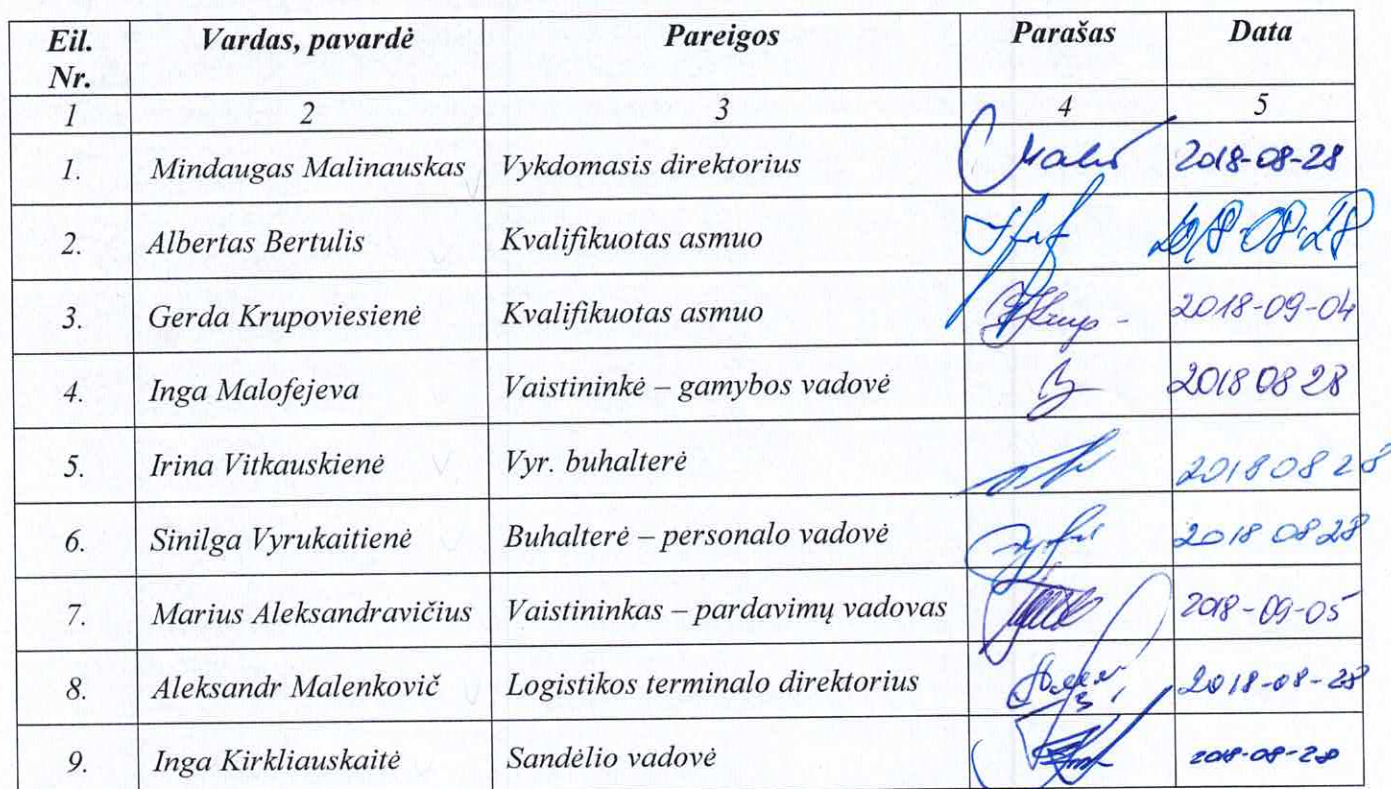 Eil. Nr. Vardas, pavardė Pareigos Parašas Data
1 2 3 4 5
1. Mindaugas Malinauskas Vykdomasis direktorius 2018-08-28
2. Albertas Bertulis Kvalifikuotas asmuo 2018-08-28
3. Gerda Krupoviesienė Kvalifikuotas asmuo 2018-09-04
4. Inga Malofejeva Vaistininkė – gamybos vadovė 2018 08 28
5. Irina Vitkauskienė Vyr. buhalterė 2018 08 28
6. Sinilga Vyrukaitienė Buhalterė – personalo vadovė 2018 08 28
7. Marius Aleksandravičius Vaistininkas – pardavimų vadovas 2018-09-05
8. Aleksandr Malenkovič Logistikos terminalo direktorius 2018-08-28
9. Inga Kirkliauskaitė Sandėlio vadovė 2018-08-28